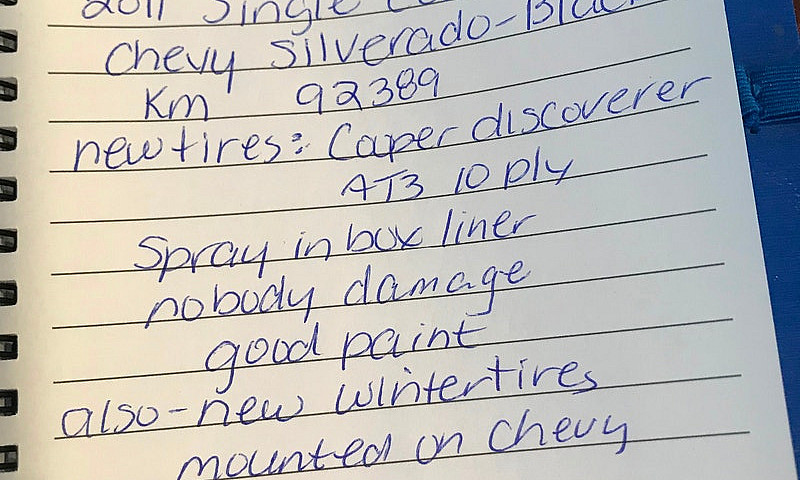 2011 Single
Chevy Silverado-Black
Km 92389
new tires: Couper discoverer
AT3 10 ply
Spray in box liner
nobody damage
good paint
also-new wintertires
mounted on chevy